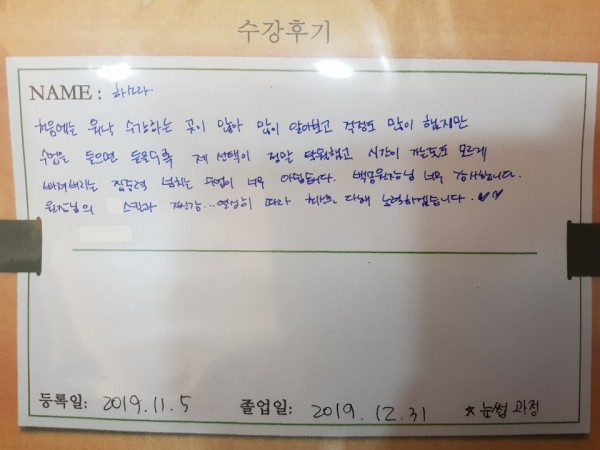 수강후기
NAME : 하미라
처음에는 워낙 수강하는 곳이 많아 많이 알아보고 걱정도 많이 했지만
수업을 들으면 들을수록 제 선택이 정말 탁월했고 시간이 가는줄도 모르게
빠져버리는 집중력 넘치는 수업이 너무 아쉽습니다. 원장님 너무 감사합니다.
원장님의 스킬과 자신감... 열심히 따라 최선 다해 노력하겠습니다. ♥♥
등록일: 2019.11.5 졸업일: 2019.12.31 ☆눈썹 과정